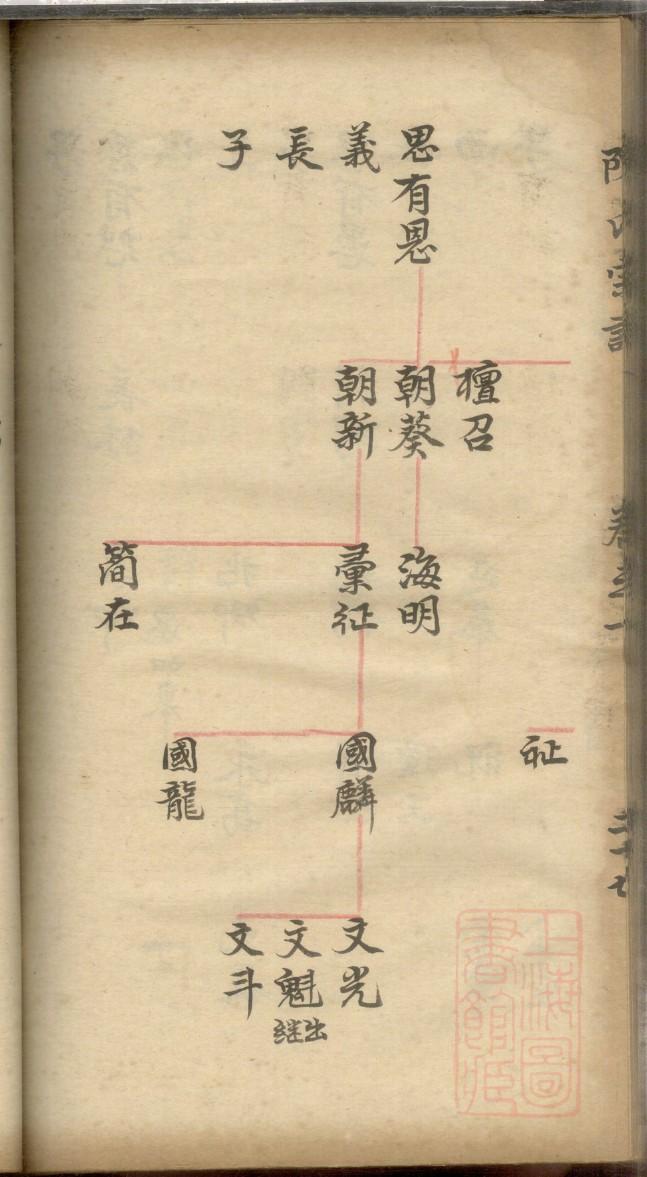 氏宗譜
卷之一
二十七
思有恩
義
長
子
檀召
朝葵
朝新
海明
彙征
簡在
祉
國麟
國龍
文光
文魁
出継
文斗
上海圖
書館藏